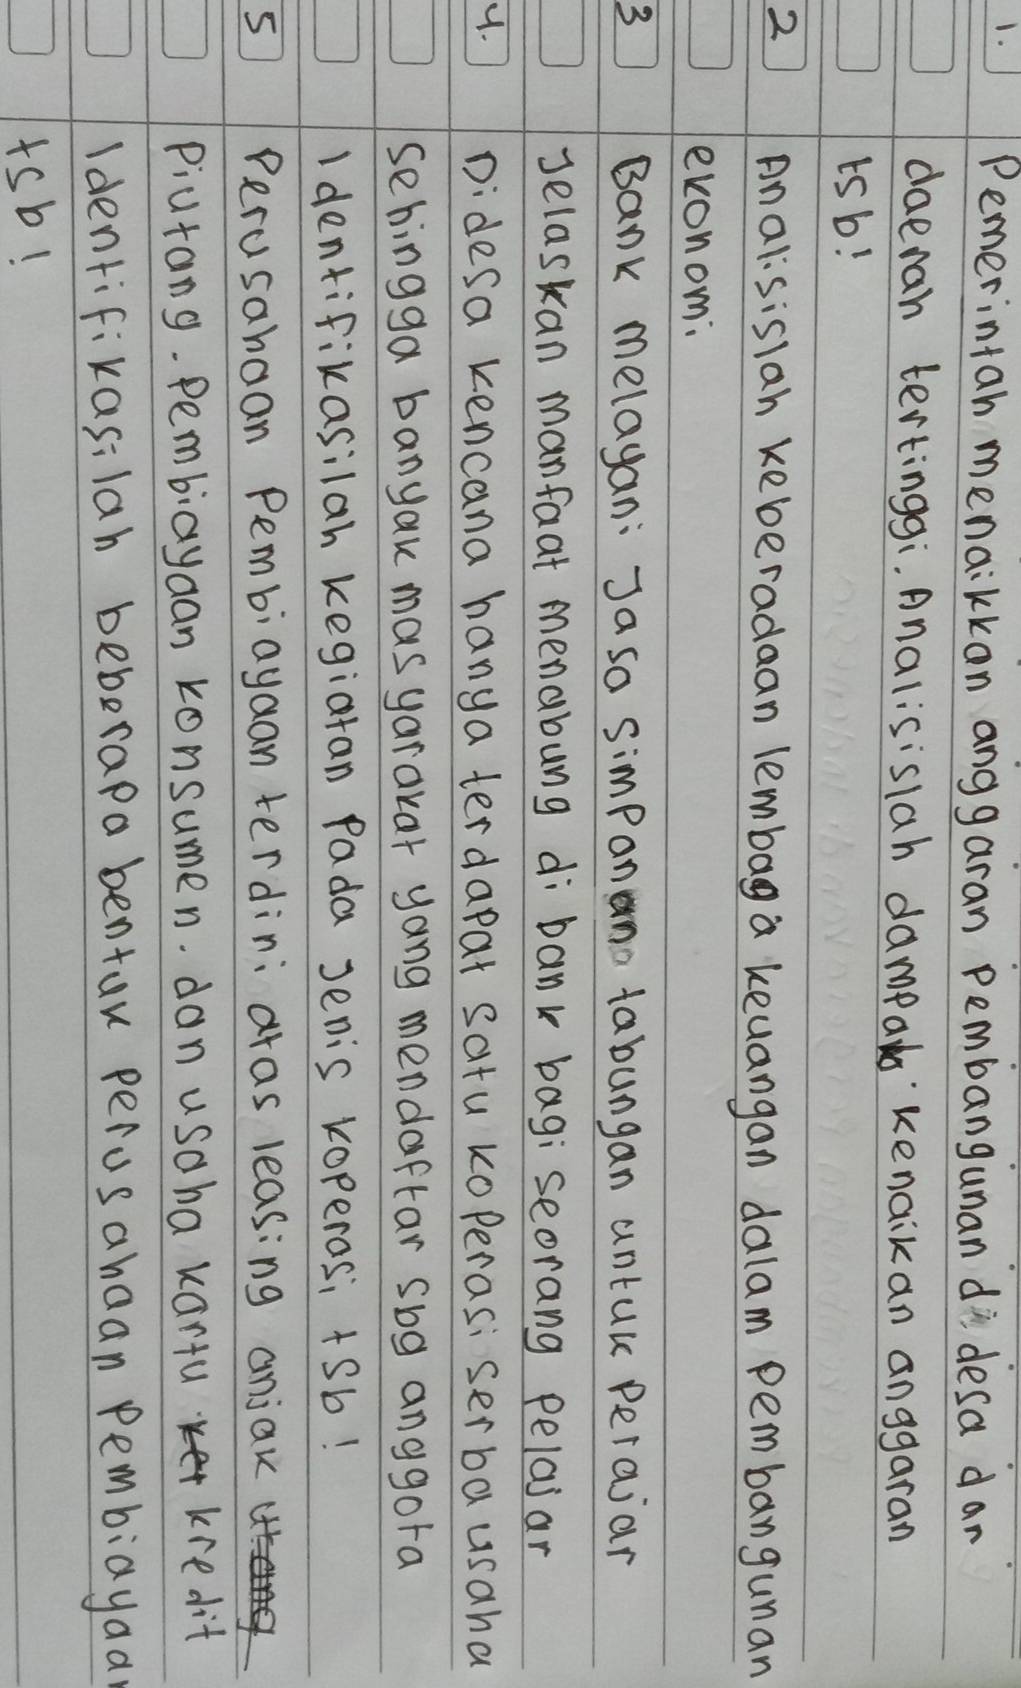 1. Pemerintah menaikkan anggaran pembangunan di desa dan
daerah tertinggi. Analisislah dampak kenaikan anggaran
tsb!
2 Analisislah keberadaan lembaga keuangan dalam pembangunan
ekonomi
3 Bank melayani jasa simpanan tabungan untuk perajar
jelaskan manfaat menabung di bank bagi seorang pelajar
4. Didesa kencana hanya terdapat satu koperasi serba usaha
sehingga banyak masyarakat yang mendaftar sbg anggota
Identifikasilah kegiatan pada jenis koperasi tsb!
5 Perusahaan pembiayaan terdiri atas leasing anjak
piutang. pembiayaan konsumen. dan usaha kartu kredit
Identifikasilah beberapa bentuk perusahaan pembiayaan
tsb!